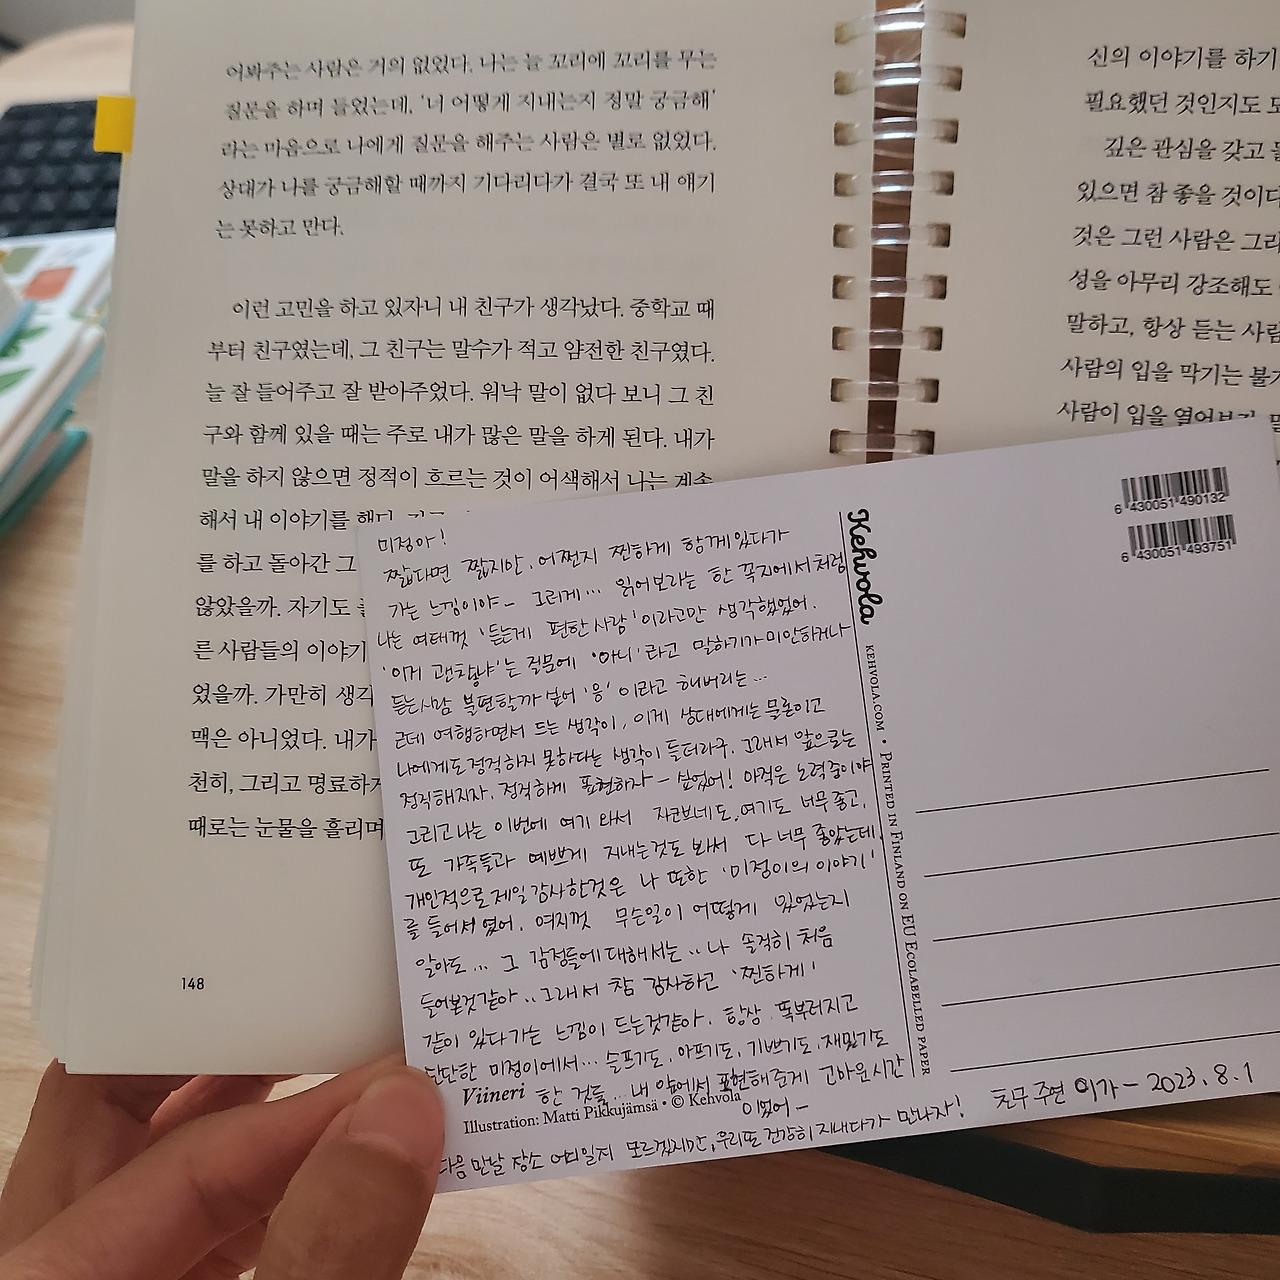 어봐주는 사람은 거의 없었다. 나는 늘 꼬리에 꼬리를 무는
질문을 하며 들었는데, ‘너 어떻게 지내는지 정말 궁금해’
라는 마음으로 나에게 질문을 해주는 사람은 별로 없었다.
상대가 나를 궁금해할 때까지 기다리다가 결국 또 내 얘기
는 못하고 만다.
이런 고민을 하고 있자니 내 친구가 생각났다. 중학교 때
부터 친구였는데, 그 친구는 말수가 적고 얌전한 친구였다.
늘 잘 들어주고 잘 받아주었다. 워낙 말이 없다 보니 그 친
구와 함께 있을 때는 주로 내가 많은 말을 하게 된다. 내가
말을 하지 않으면 정적이 흐르는 것이 어색해서 나는 계속
해서 내 이야기를 했다.
를 하고 돌아간 그
않았을까. 자기도
른 사람들의 이야기
었을까. 가만히 생각
맥은 아니었다. 내가
천히, 그리고 명료하게
때로는 눈물을 흘리며
148
신의 이야기를 하기
필요했던 것인지도
깊은 관심을 갖고
있으면 참 좋을 것이다
것은 그런 사람은 그리
성을 아무리 강조해도
말하고, 항상 듣는 사람
사람의 입을 막기는
사람이 입을 열어보기
미정아!
짧다면 짧지만, 어쩐지 찐하게 함께있다가
가는 느낌이야~ 그러게... 읽어보라는 한 꼭지에서처럼
나는 여태껏 ‘듣는게 편한 사람’이라고만 생각했었어.
‘이거 괜찮냐’는 질문에 ‘아니’라고 말하기가 미안하거나
듣는사람 불편할까 싶어 ‘응’이라고 해버리는...
근데 여행하면서 드는 생각이, 이게 상대에게는 물론이고
나에게도 정직하지 못하다는 생각이 들더라구. 그래서 앞으로는
정직해지자, 정직하게 표현하자 — 싶었어! 아직은 노력중이야
그리고 나는 이번에 여기 와서 자코브네도, 여기도 너무 좋고,
또 가족들과 예쁘게 지내는것도 봐서 다 너무 좋았는데,
개인적으로 제일 감사한것은 나 또한 ‘미정이의 이야기’
를 들어서 였어. 여지껏 무슨일이 어떻게 있었는지
알아도... 그 감정들에 대해서는.. 나 솔직히 처음
들어본것같아.. 그래서 참 감사하고 ‘찐하게’
같이 있다가는 느낌이 드는것같아. 항상 똑부러지고
단단한 미정이에서... 슬프기도, 아프기도, 기쁘기도, 재밌기도
한 것들... 내 앞에서 표현해준게 고마운시간
이었어 —
다음 만날 장소 어디일지 모르겠지만, 우리또 건강히 지내다가 만나자!
친구 주연 이가 — 2023. 8. 1
Viineri
Illustration: Matti Pikkujämsä • © Kehvola
Kehvola
KEHVOLA.COM • PRINTED IN FINLAND ON EU ECOLABELLED PAPER
6 430051 490132
6 430051 493751